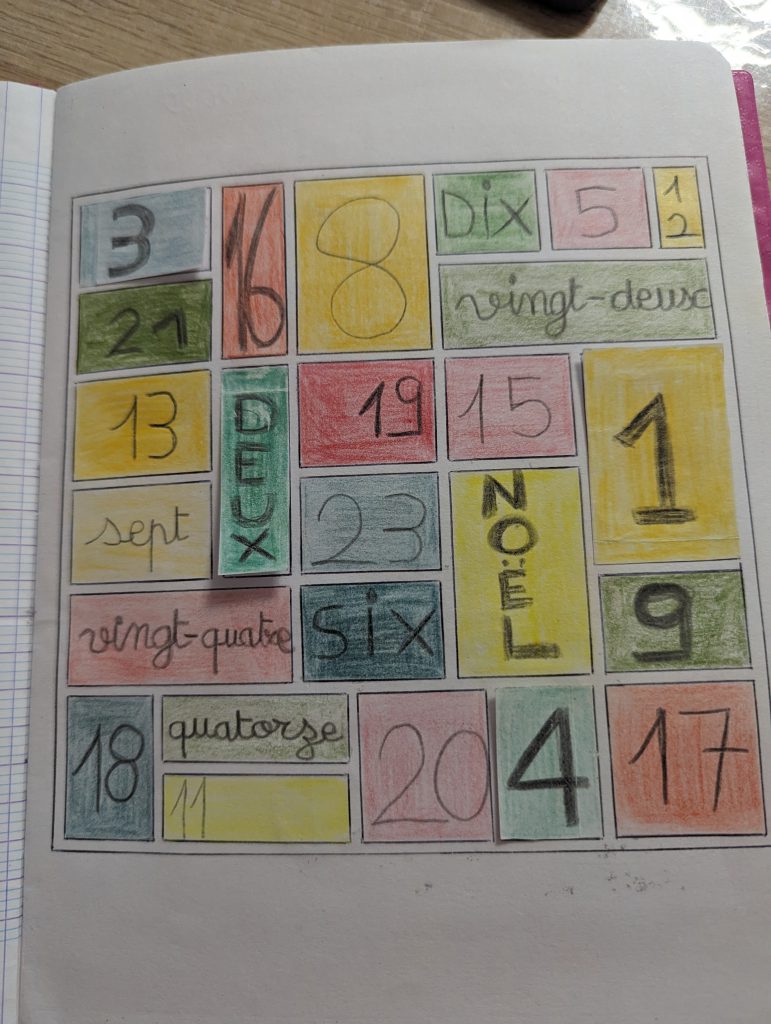 3
16
8
DiX
5
12
21
vingt-deux
13
DEUX
19
15
1
sept
23
NOËL
vingt-quatre
SiX
9
18
quatorze
20
4
17
11